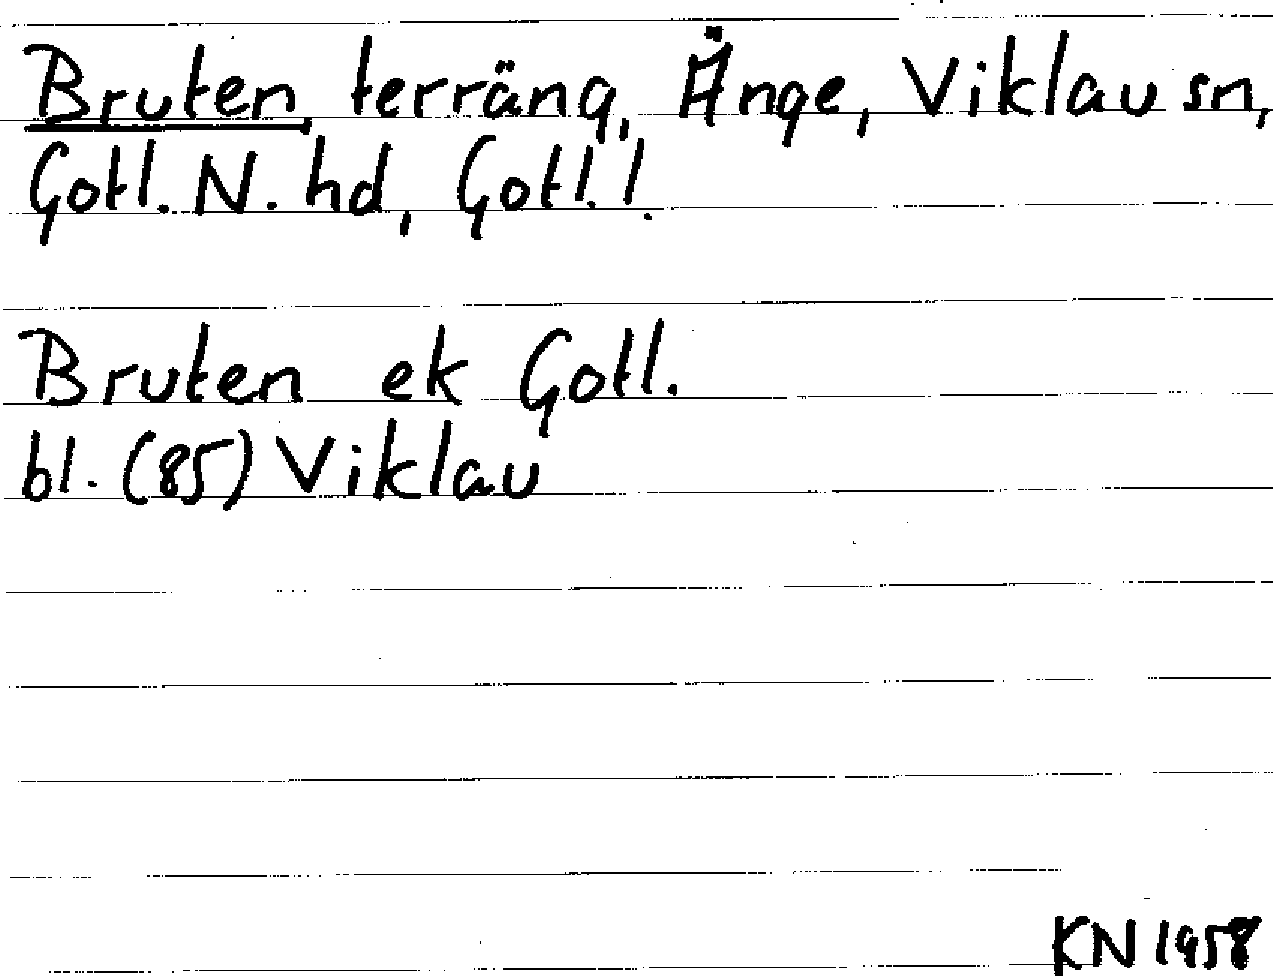 Bruten, terräng, Änge, Viklau sn,
Gotl. N. hd, Gotl.!
Bruten ek Gotl.
bl. (85) Viklau
KN 1958